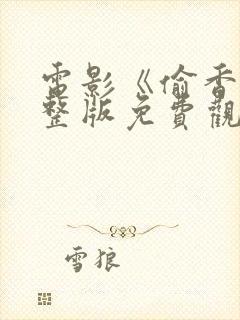 電影《偷香
整版免費觀
雪狼